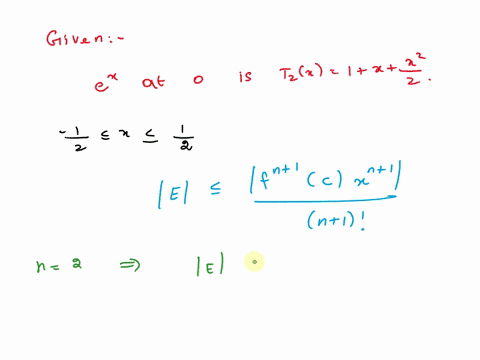 Given:-
e^x at 0 is T₂(x) = 1 + x + x²/2.
-1/2 ≤ x ≤ 1/2
|E| ≤ |f^{n+1}(c) x^{n+1}| / (n+1)!
n = 2 ⇒ |E|